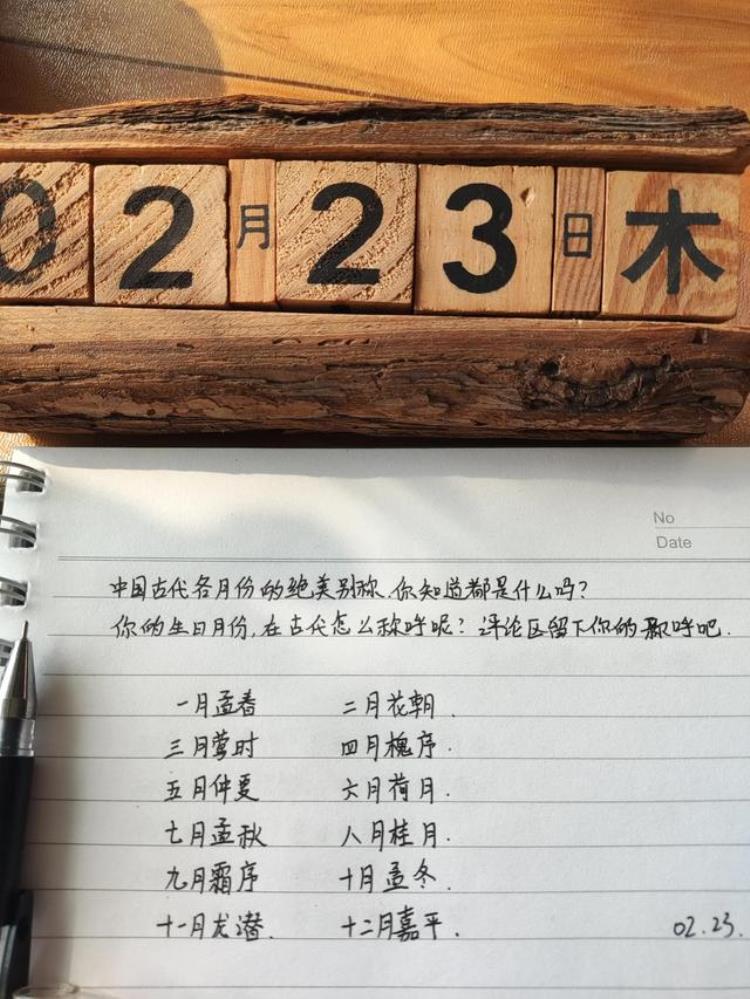 02月23日木
No
Date
中国古代各月份的绝美别称,你知道都是什么吗?
你的生日月份,在古代怎么称呼呢?评论区留下你的称呼吧.
一月孟春 二月花朝.
三月莺时 四月槐序.
五月仲夏 六月荷月.
七月孟秋 八月桂月.
九月霜序 十月孟冬.
十一月龙潜. 十二月嘉平.
02.23.